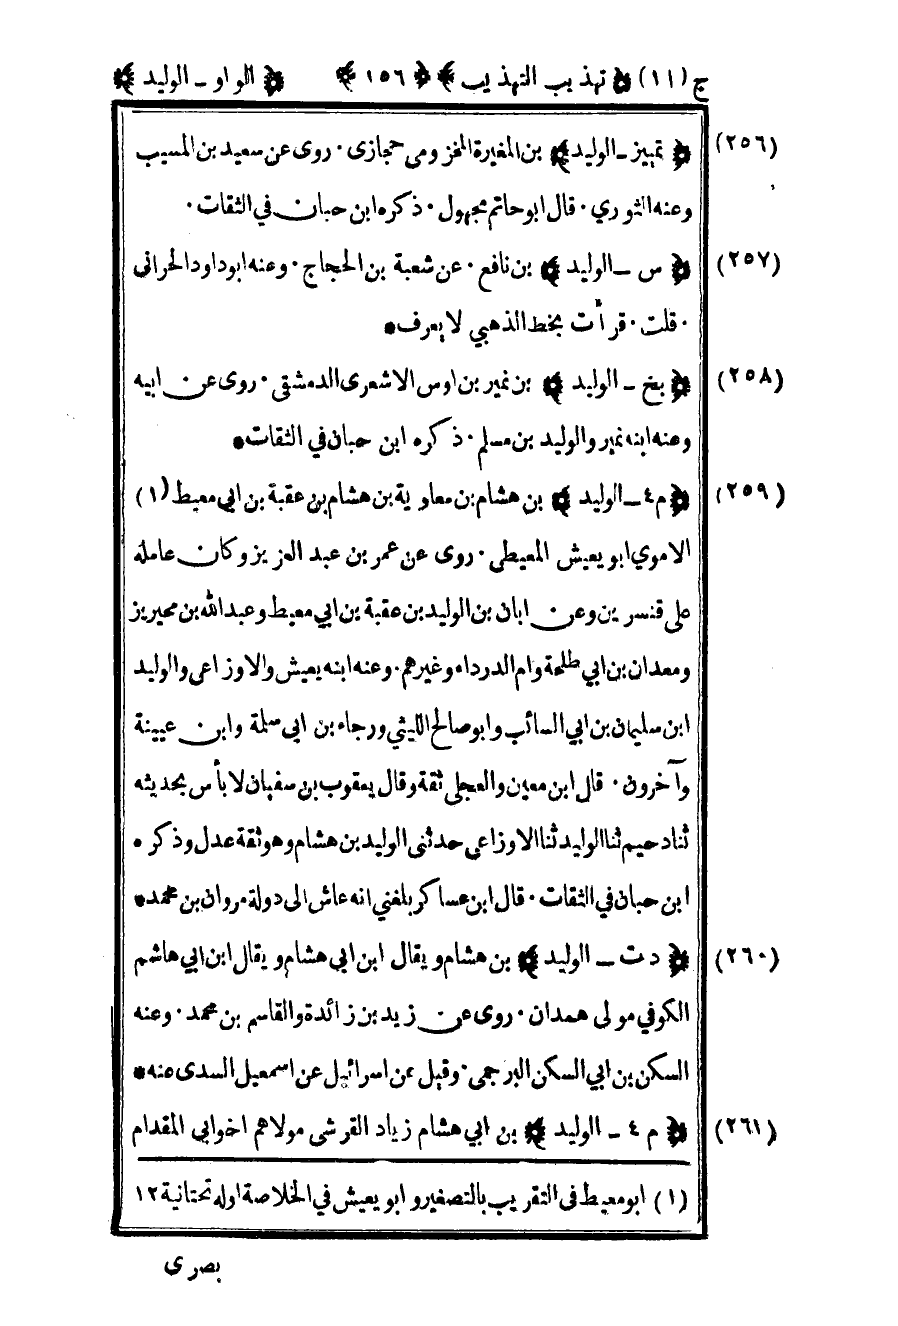 ج (١١) ﴿ تهذيب التهذيب ﴾ ﴿ ١٥٦ ﴾ ﴿ الواو ـ الوليد ﴾
(٢٥٦) ﴿ تمييز ـ الوليد ﴾ بن المغيرة المخزومى حجازى · روى عن سعيد بن المسيب
وعنه الثوري · قال ابو حاتم مجهول · ذكره ابن حبان في الثقات ·
(٢٥٧) ﴿ س ـ الوليد ﴾ بن نافع · عن شعبة بن الحجاج · وعنه ابو داود الحرانى
· قلت · قرأت بخط الذهبي لا يعرف *
(٢٥٨) ﴿ بخ ـ الوليد ﴾ بن نمير بن اوس الاشعرى الدمشقى · روى عن ابيه
وعنه ابنه نمير والوليد بن مسلم · ذكره ابن حبان في الثقات *
(٢٥٩) ﴿ م ٤ ـ الوليد ﴾ بن هشام بن معاوية بن هشام بن عقبة بن ابي معيط (١)
الاموي ابو يعيش المعيطى · روى عن عمر بن عبد العزيز وكان عامله
على قنسرين وعن ابان بن الوليد بن عقبة بن ابي معيط وعبد الله بن محيريز
ومعدان بن ابي طلحة وام الدرداء وغيرهم · وعنه ابنه يعيش والاوزاعى والوليد
ابن سليمان بن ابي السائب وابو صالح الليثي ورجاء بن ابى سلمة وابن عيينة
وآخرون · قال ابن معين والعجلى ثقة وقال يعقوب بن سفيان لا بأس بحديثه
ثنا دحيم ثنا الوليد ثنا الاوزاعى حدثنى الوليد بن هشام وهو ثقة عدل وذكره
ابن حبان في الثقات · قال ابن عساكر بلغني انه عاش الى دولة مروان بن محمد *
(٢٦٠) ﴿ د ت ـ الوليد ﴾ بن هشام ويقال ابن ابى هشام ويقال ابن ابي هاشم
الكوفي مولى همدان · روى عن زيد بن زائدة والقاسم بن محمد · وعنه
السكن بن ابي السكن البرجمى · وقيل عن اسرائيل عن اسمعيل السدى عنه *
(٢٦١) ﴿ م ٤ ـ الوليد ﴾ بن ابي هشام زياد القرشى مولاهم اخو ابى المقدام
(١) ابو معيط فى التقريب بالتصغير وابو يعيش في الخلاصة اوله تحتانية ١٢
بصرى